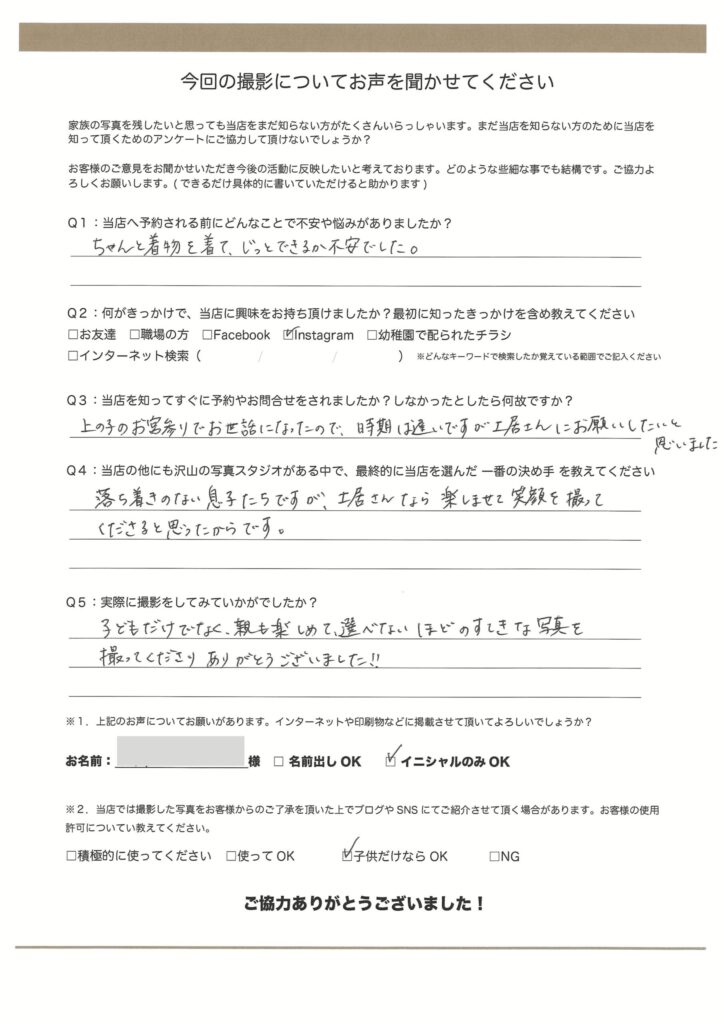 今回の撮影についてお声を聞かせてください
家族の写真を残したいと思っても当店をまだ知らない方がたくさんいらっしゃいます。まだ当店を知らない方のために当店を
知って頂くためのアンケートにご協力して頂けないでしょうか?
お客様のご意見をお聞かせいただき今後の活動に反映したいと考えております。どのような些細な事でも結構です。ご協力よ
ろしくお願いします。(できるだけ具体的に書いていただけると助かります)
Q1:当店へ予約される前にどんなことで不安や悩みがありましたか?
ちゃんと着物を着て、じっとできるか不安でした。
Q2:何がきっかけで、当店に興味をお持ち頂けましたか?最初に知ったきっかけを含め教えてください
□お友達 □職場の方 □Facebook ☑Instagram □幼稚園で配られたチラシ
□インターネット検索( / / ) ※どんなキーワードで検索したか覚えている範囲でご記入ください
Q3:当店を知ってすぐに予約やお問合せをされましたか?しなかったとしたら何故ですか?
上の子のお宮参りでお世話になったので、時期は遅いですが土居さんにお願いしたいと
思いました
Q4:当店の他にも沢山の写真スタジオがある中で、最終的に当店を選んだ 一番の決め手 を教えてください
落ち着きのない息子たちですが、土居さんなら楽しませて笑顔を撮って
くださると思ったからです。
Q5:実際に撮影をしてみていかがでしたか?
子どもだけでなく、親も楽しめて、選べないほどのすてきな写真を
撮ってくださりありがとうございました!!
※1.上記のお声についてお願いがあります。インターネットや印刷物などに掲載させて頂いてよろしいでしょうか?
お名前: 様 □ 名前出し OK ☑ イニシャルのみ OK
※2.当店では撮影した写真をお客様からのご了承を頂いた上でブログや SNS にてご紹介させて頂く場合があります。お客様の使用
許可についてい教えてください。
□積極的に使ってください □使って OK ☑子供だけなら OK □NG
ご協力ありがとうございました!